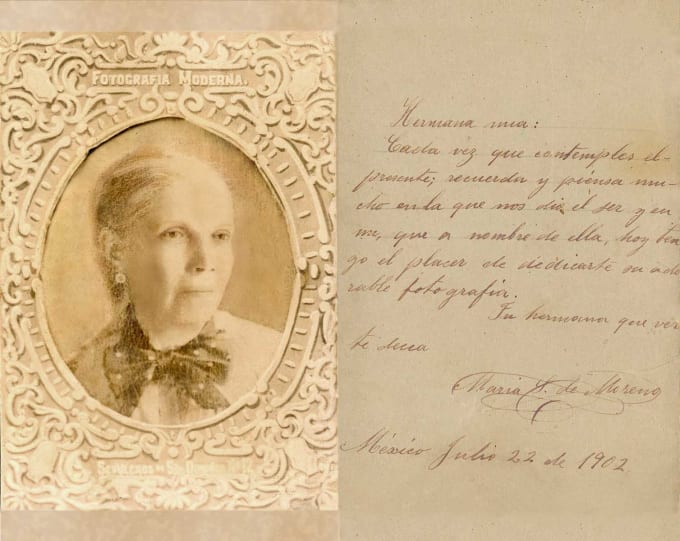 FOTOGRAFIA MODERNA.
SEPULCROS DE STO. DOMINGO Nº 12
Hermana mia:
Cada vez que contemples el
presente; recuerda y piensa mu-
cho en la que nos dió el ser y en
mi, que a nombre de ella, hoy ten
go el placer de dedicarte su ado
rable fotografia.
Tu hermana que ver
te desea
Maria S. de Moreno
México Julio 22 de 1902.